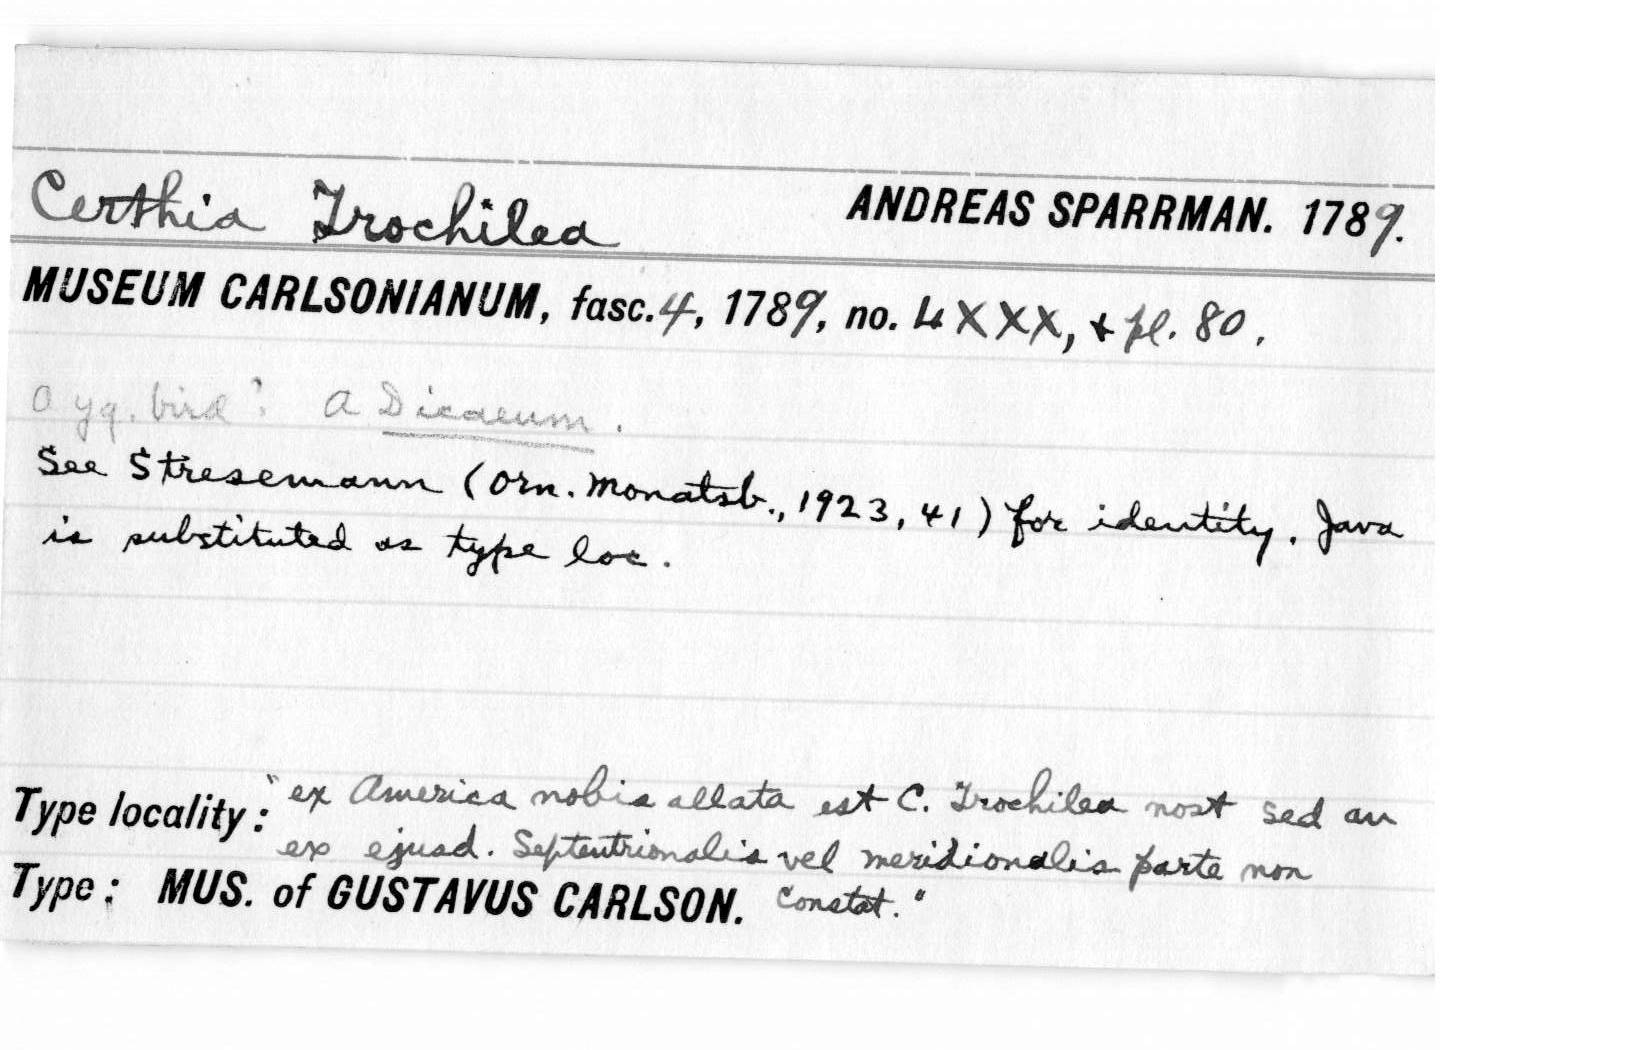 Certhia Trochilea ANDREAS SPARRMAN. 1789.
MUSEUM CARLSONIANUM, fasc. 4, 1789, no. LXXX, + pl. 80.
a yg. bird? a Dicaeum.
See Stresemann (Orn. Monatsb., 1923, 41) for identity. Java
is substituted as type loc.
Type locality: "ex America nobis allata est C. Trochilea nost sed an
ex ejusd. Septentrionalis vel meridionalis parte non
Type: MUS. of GUSTAVUS CARLSON. Constat."